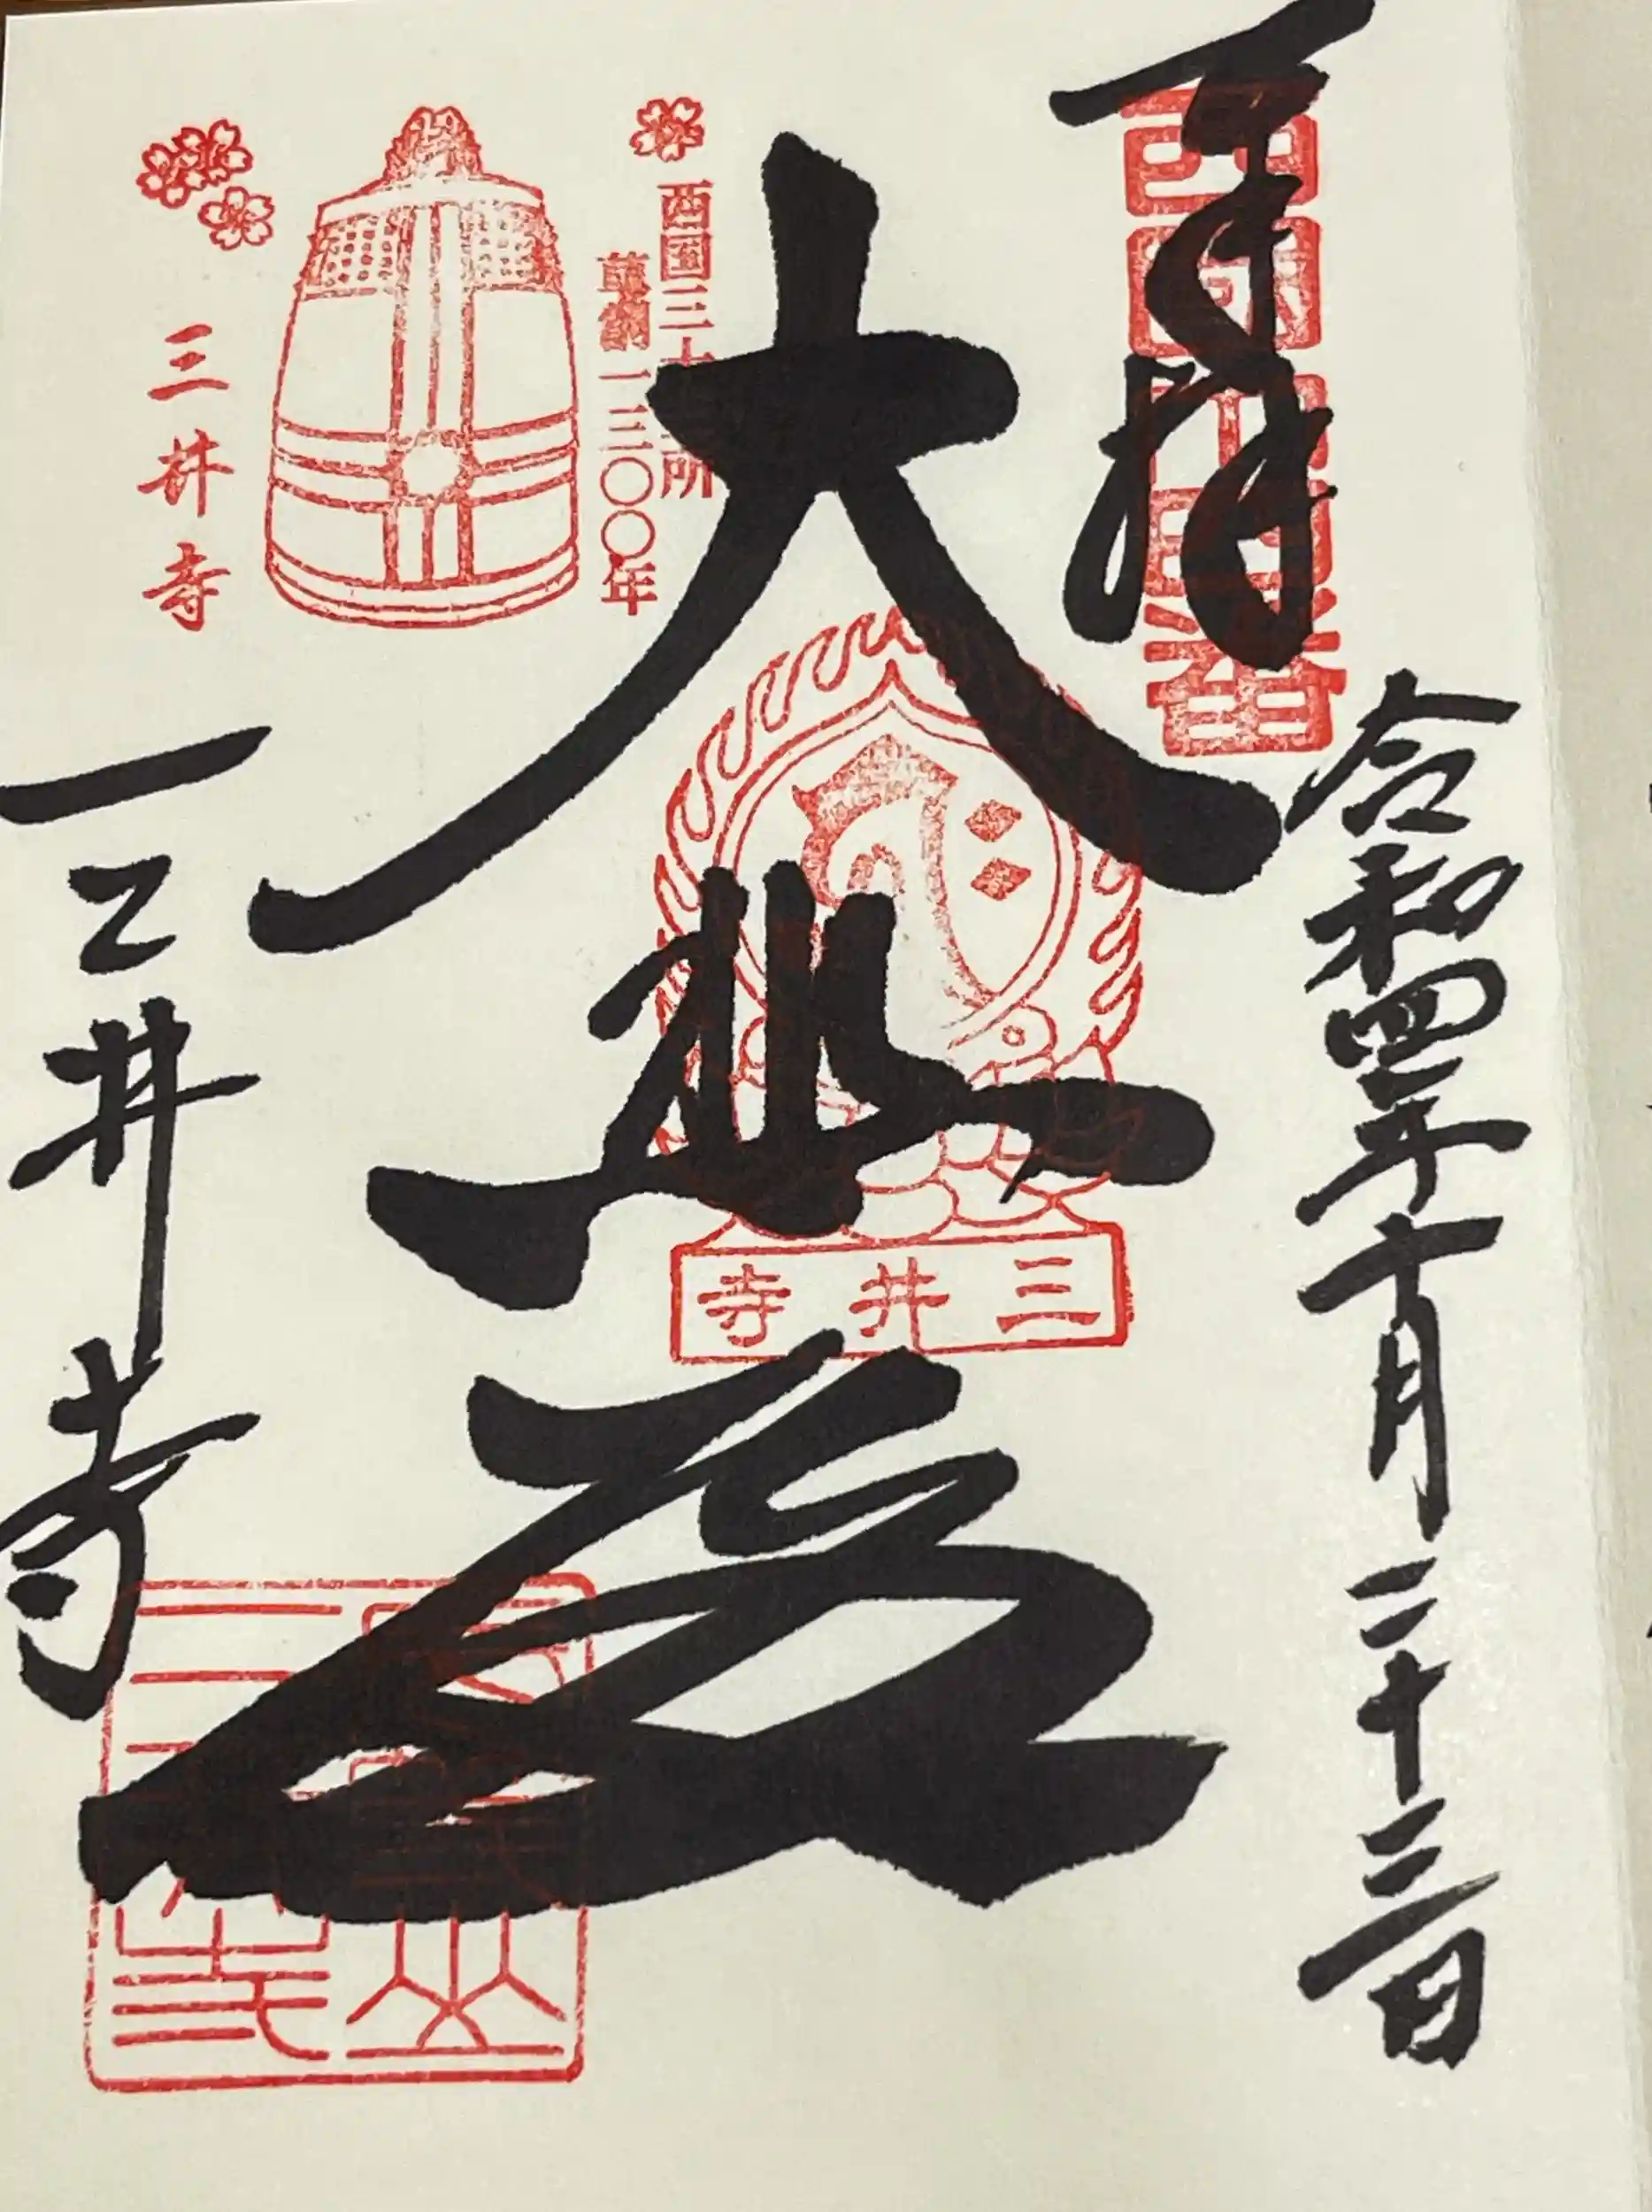 奉拝
西国十四番
令和四年十一月二十三日
大悲殿
西国三十三所
草創一三〇〇年
三井寺
三井寺
三井寺